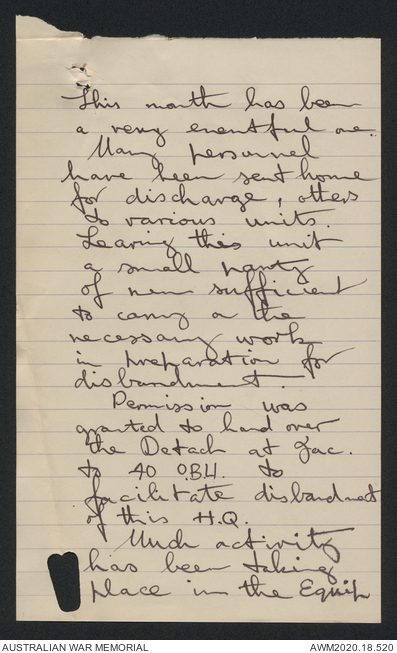 This month has been
a very eventful one.
Many personnel
have been sent home
for discharge, others
to various units.
Leaving this unit
a small party
of men sufficient
to carry on the
necessary work
in preparation for
disbandment.
Permission was
granted to hand over
the Detach at Jac.
to 40 O.B.U. to
facilitate disbandment
of this H.Q.
Much activity
has been taking
place in the Equip
AUSTRALIAN WAR MEMORIAL
AWM2020.18.520